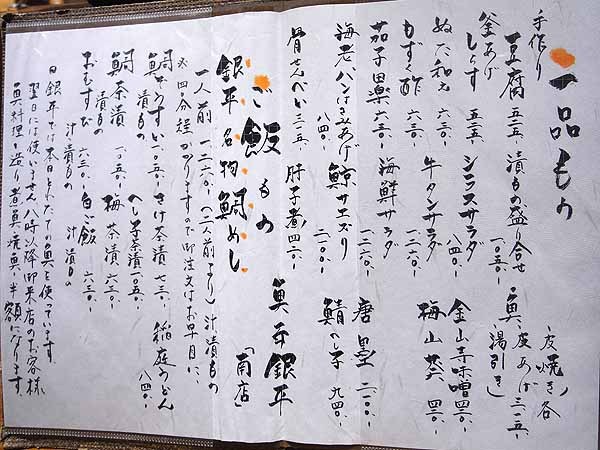 一品もの
手作り豆腐 五二五、
漬もの盛り合せ 一〇五〇、
魚、皮焼き、皮あげ、湯引き 各三一五、
釜あげしらす 五二五、
シラスサラダ 八四〇、
金山寺味噌 四二〇、
ぬた和え 六三〇、
牛タンサラダ 一二六〇、
梅山葵 四二〇、
もずく酢 六三〇、
海鮮サラダ 一二六〇、
茄子田楽 六三〇、
鯨サエズリ 二一〇〇、
唐墨 二一〇〇、
海老パンはさみあげ 八四〇、
鯖へしこ 九四〇、
骨せんべい 三一五、
肝子煮 四二〇、
ご飯もの
魚平銀平「南店」
銀平名物鯛めし
一人前 一二六〇、(二人前より)汁漬もの
※四〇分程かかりますので御注文はお早目に、
鯛ぞうすい 漬もの 一〇五〇、
さけ茶漬 七三〇、
稲庭うどん 八四〇、
鯛茶漬 漬もの 一〇五〇、
へしこ茶漬 一〇五〇、
梅茶漬 六三〇、
おむすび 汁漬もの 六三〇、
白ご飯 汁漬もの 六三〇、
銀平では本日とれたての魚を使っています
翌日には使いません八時以降御来店のお客様、
魚料理(造り煮魚焼魚)半額になります、